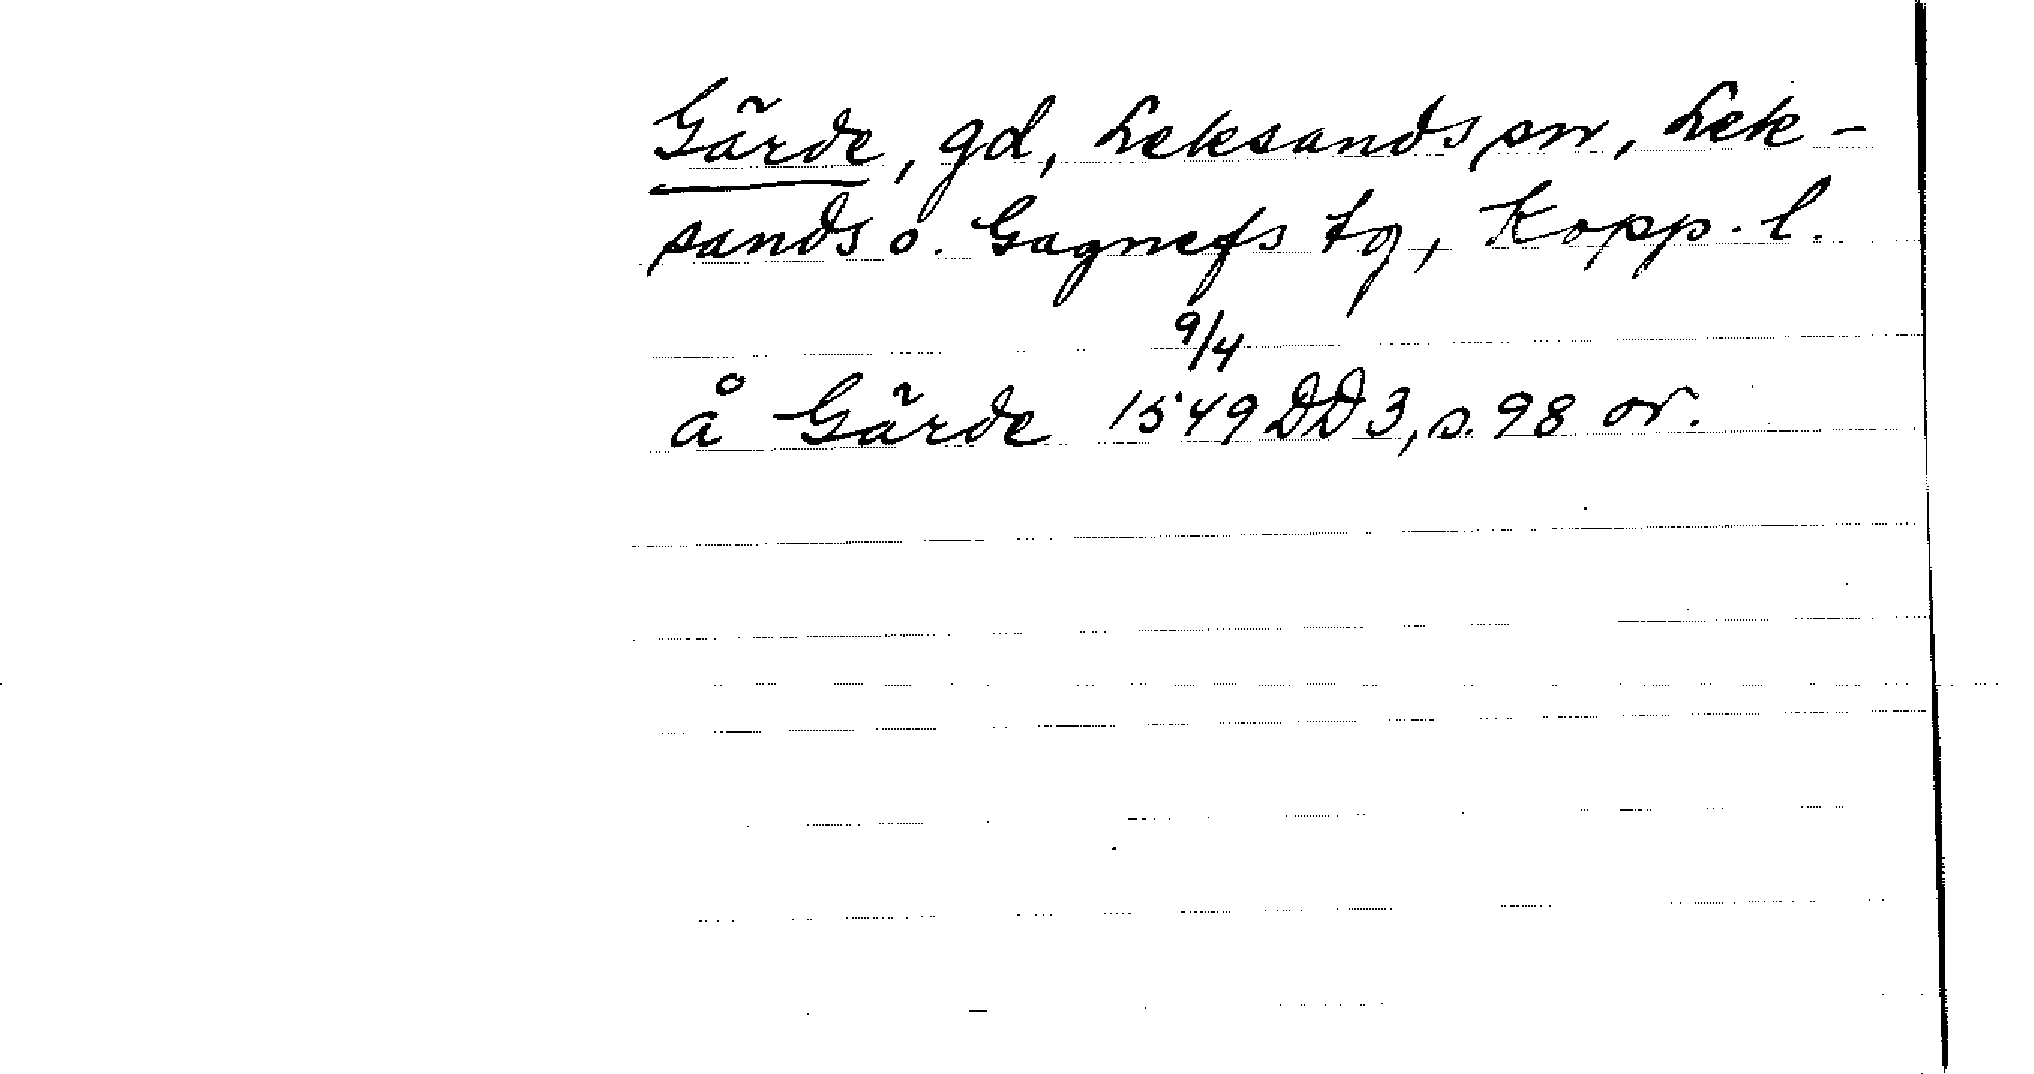 Gärde, gd, Leksands sn, Lek-
sands o. Gagnefs tg, Kopp. l.
9/4
å Gärde 1549 DD 3, s. 98 or.